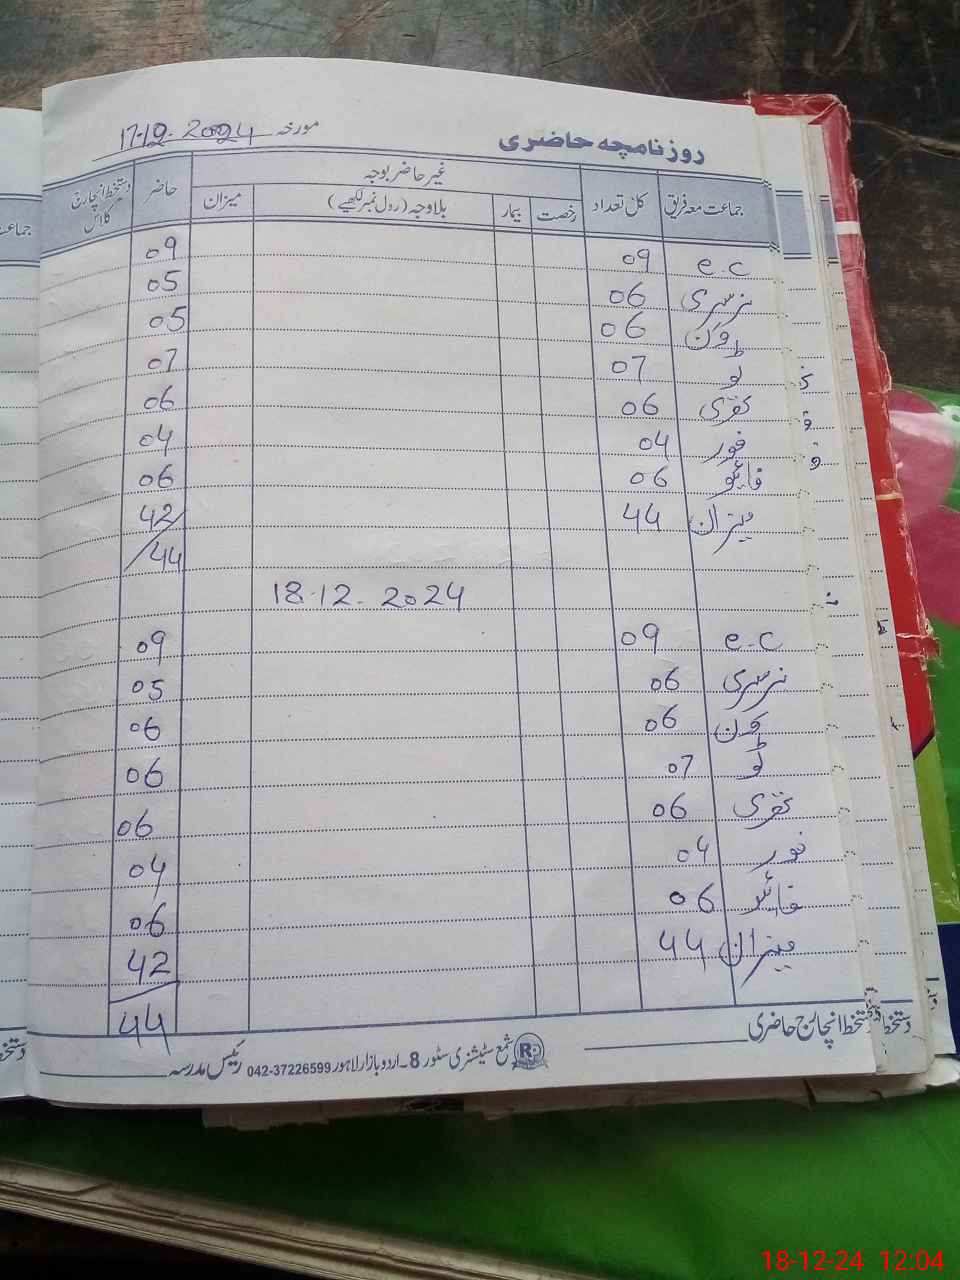 روزنامچہ حاضری مورخہ 17-12-2024
جماعت معہ فریق کل تعداد غیر حاضر بوجہ حاضر دستخط انچارج کلاس
رخصت بیمار بلاوجہ (رول نمبر لکھیے) میزان
e.c 09 09
نرسری 06 05
ون 06 05
ٹو 07 07
تھری 06 06
فور 04 04
فائیو 06 06
میزان 44 42/
44
18-12-2024
e.c 09 09
نرسری 06 05
ون 06 06
ٹو 07 06
تھری 06 06
فور 04 04
فائیو 06 06
میزان 44 42/
44
دستخط انچارج حاضری
شمع سٹیشنری سٹور 8-اردو بازار لاہور 042-37226599 رئیس مدرسہ
18-12-24 12:04